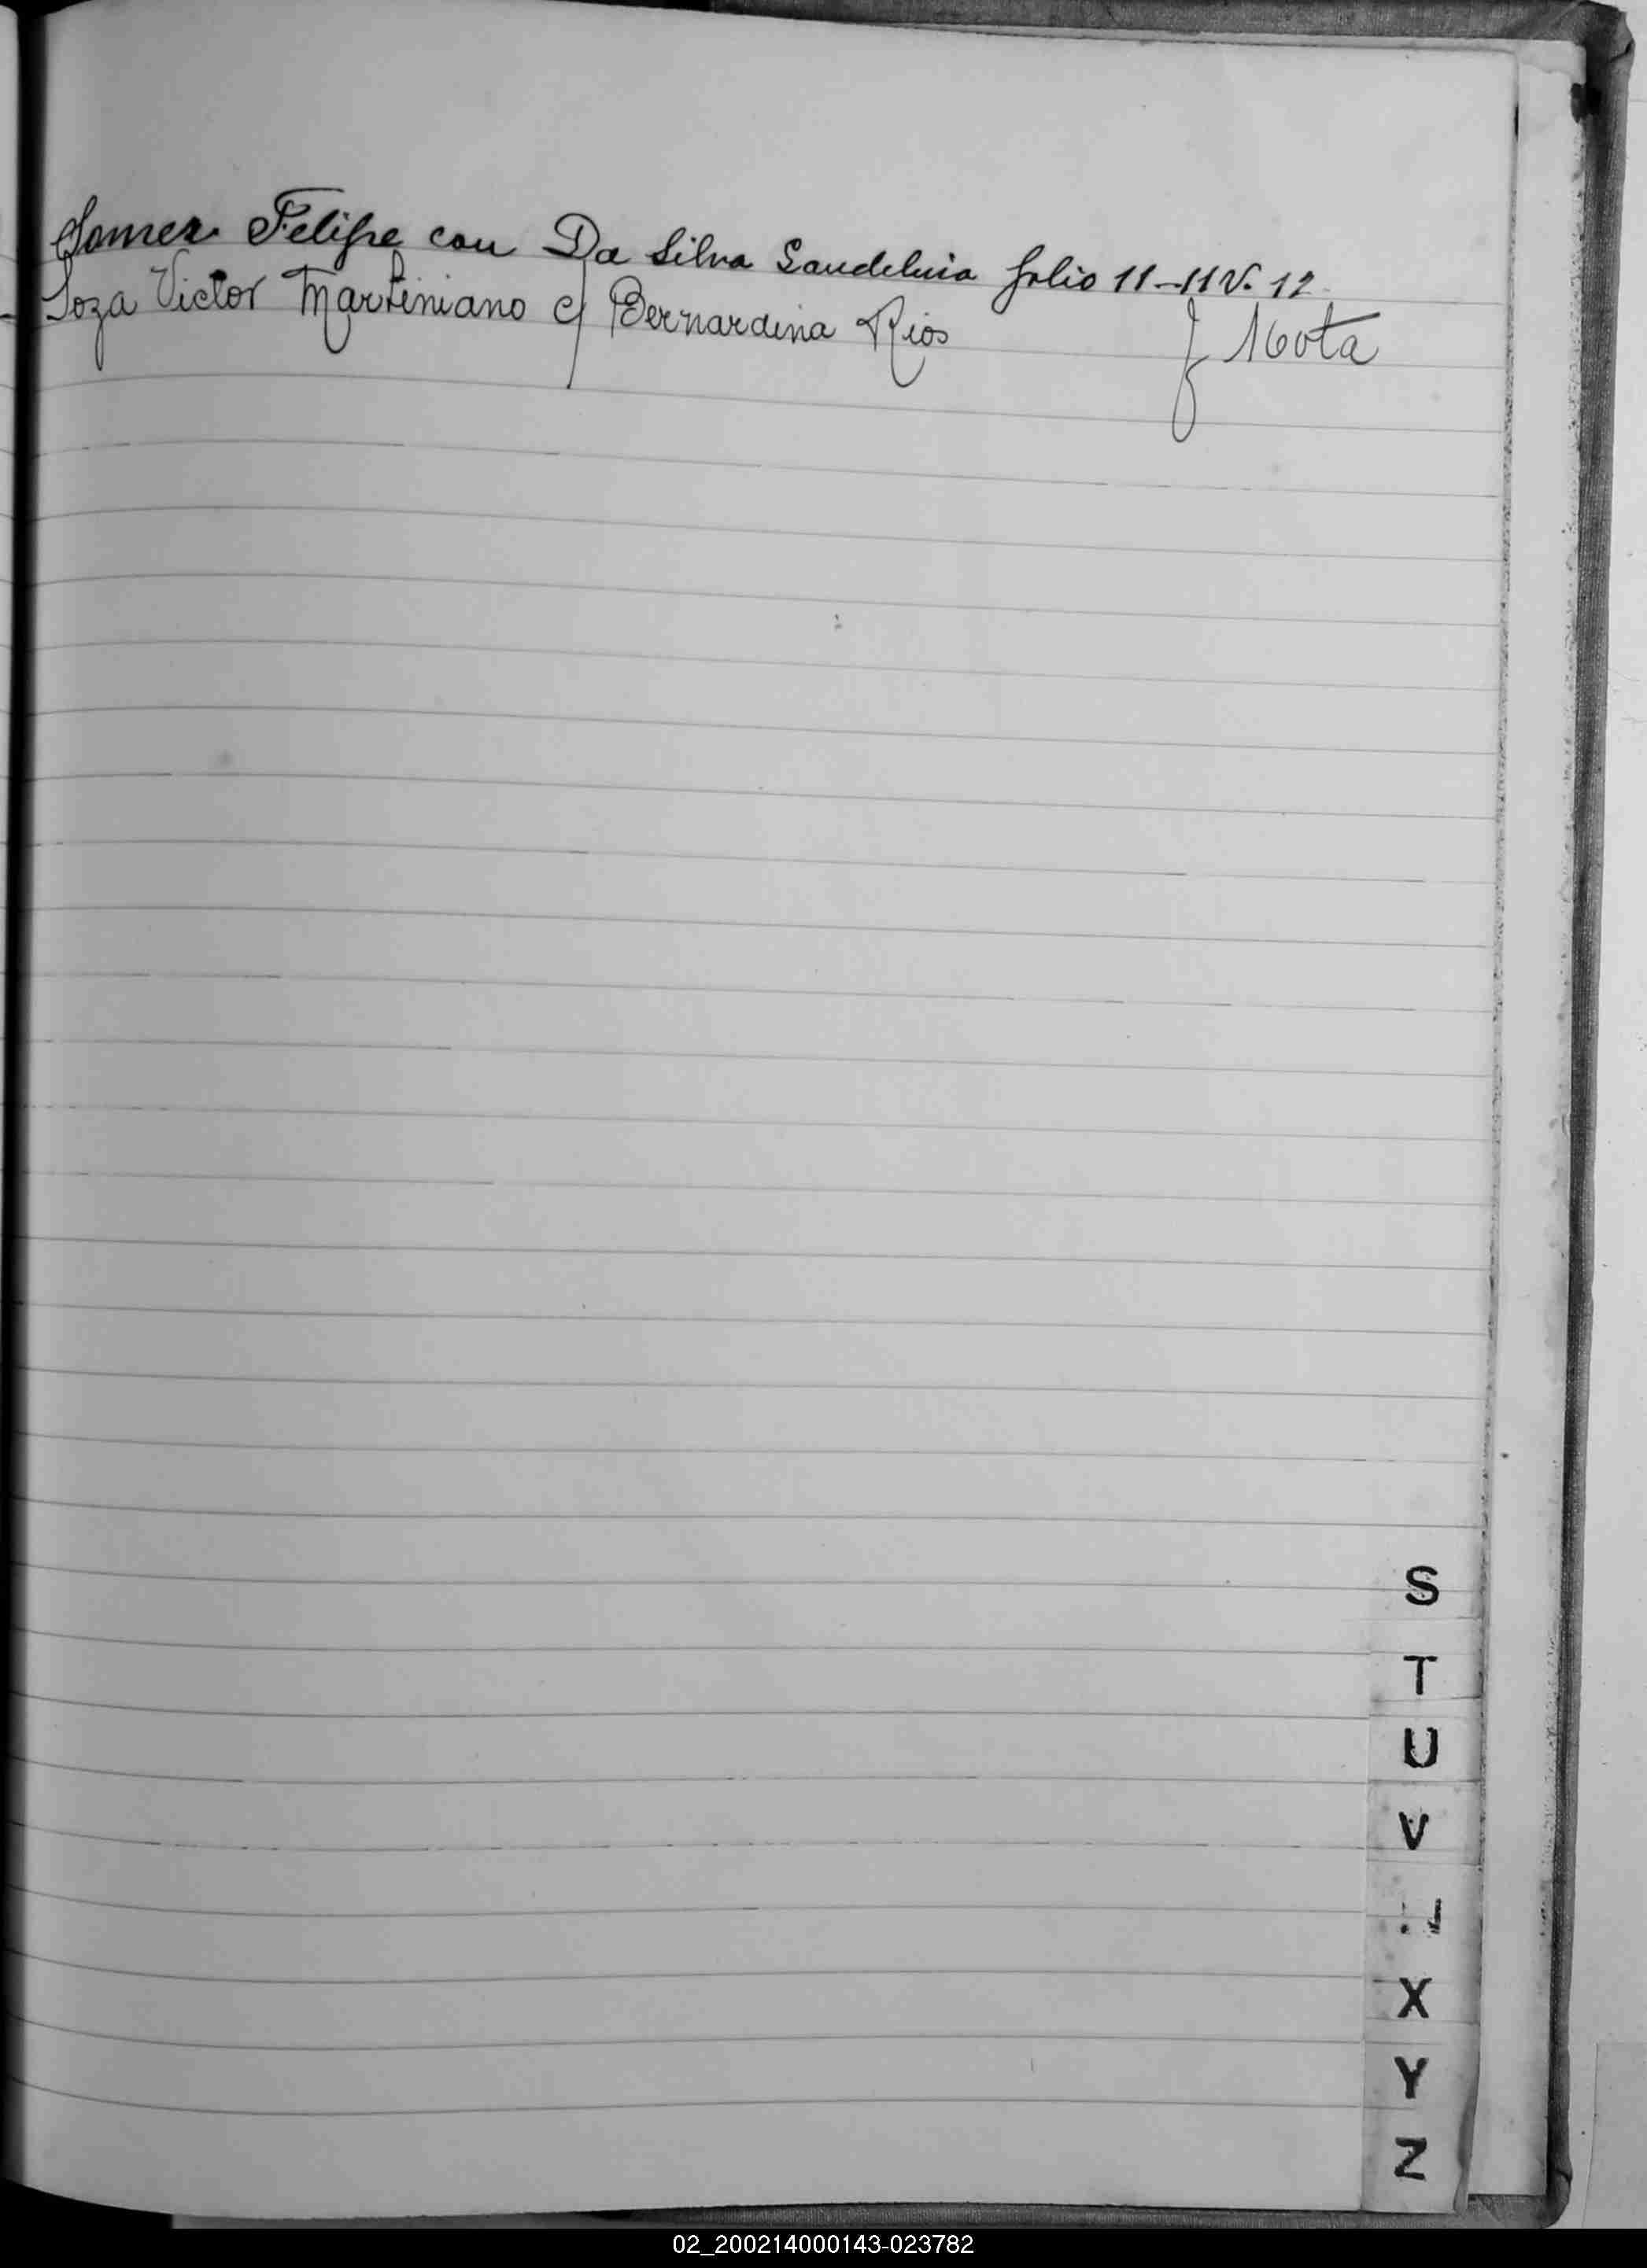 Somer Felipe con Da Silva folio 11-11V. 12
Soza Victor Martiniano c/ Bernardina Rios f 16 vta
S
T
U
V
X
Y
Z
02_200214000143-023782